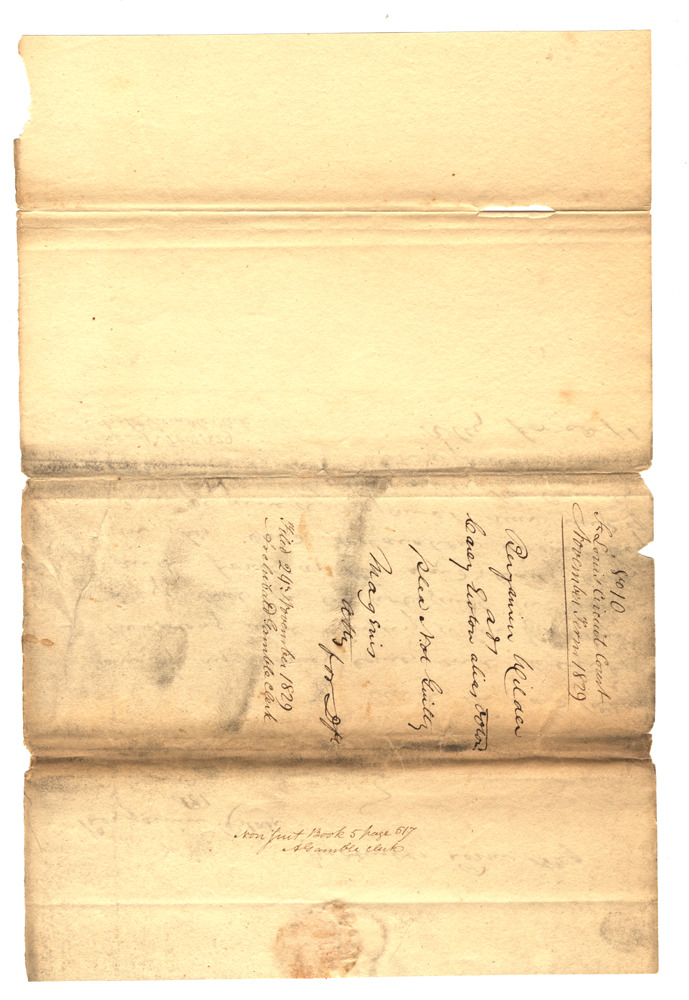 No 10
St Louis Circuit Court
November Term 1829
Benjamin Wilder
vs
Carey alias
Plea Not Guilty
Maginis
Atty for Dft
Filed 24th November 1829
Archibald Gamble clerk
Non suit Book 5 page 517
A Gamble clerk